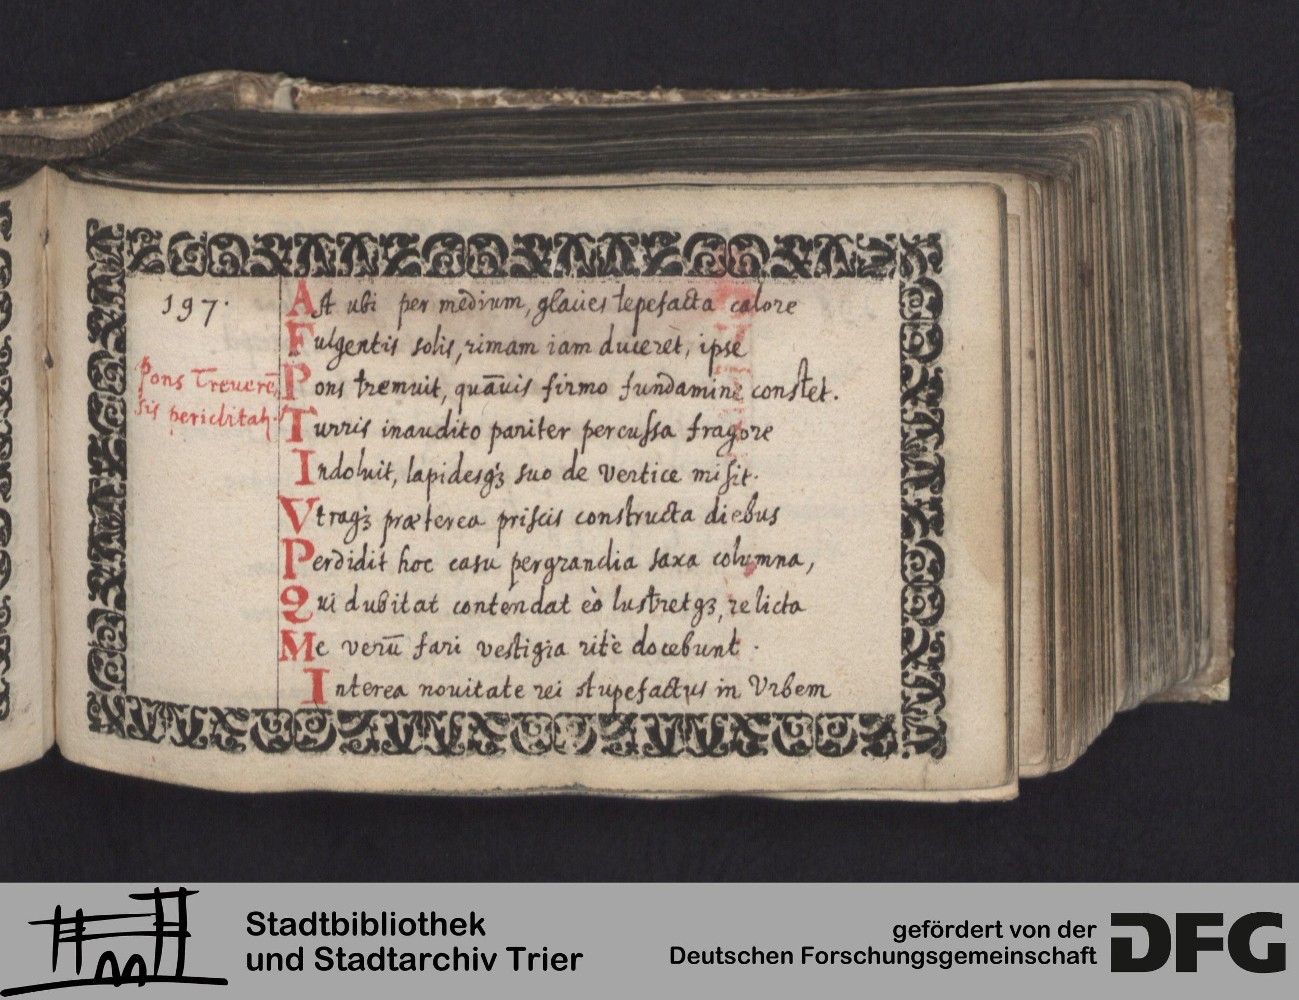 197.
Pons Treuerē,
sis periclitat.
Ast ubi per medium, glacies tepefacta calore
Fulgentis solis, rimam iam duceret, ipse
Pons tremuit, quāuis firmo fundamine constet.
Turris inaudito pariter percussa fragore
Indoluit, lapidesqꝫ suo de vertice misit.
Vtraqꝫ præterea priscis constructa diebus
Perdidit hoc casu pergrandia saxa columna,
Qui dubitat contendat eò lustretqꝫ, relicta
Me verū fari vestigia ritè docebunt.
Interea nouitate rei stupefactus in Vrbem
Stadtbibliothek
und Stadtarchiv Trier
gefördert von der
Deutschen Forschungsgemeinschaft
DFG